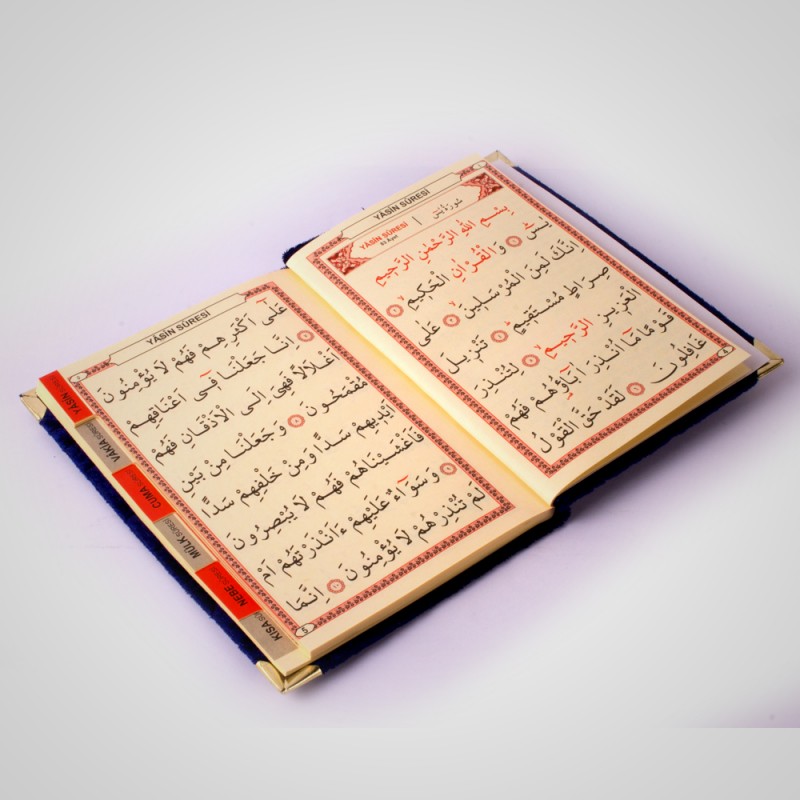 YÂSİN SÛRESİ
YÂSİN SÛRESİ
سُورَةُ يٰسٓ
بِسْمِ اللّٰهِ الرَّحْمٰنِ الرَّحِيمِ
يٰسٓ ۝ وَالْقُرْاٰنِ الْحَكِيمِ ۝
اِنَّكَ لَمِنَ الْمُرْسَلِينَ ۝ عَلٰى
صِرَاطٍ مُسْتَقِيمٍ ۝ تَنْزِيلَ
الْعَزِيزِ الرَّحِيمِ ۝ لِتُنْذِرَ
قَوْمًا مَٓا اُنْذِرَ اٰبَٓاؤُ۬هُمْ فَهُمْ
غَافِلُونَ ۝ لَقَدْ حَقَّ الْقَوْلُ
4
YÂSİN SÛRESİ
عَلٰٓى اَكْثَرِهِمْ فَهُمْ لَا يُؤْمِنُونَ
۝ اِنَّا جَعَلْنَا فٓى اَعْنَاقِهِمْ
اَغْلَالًا فَهِىَ اِلَى الْاَذْقَانِ فَهُمْ
مُقْمَحُونَ ۝ وَجَعَلْنَا مِنْ بَيْنِ
اَيْدِيهِمْ سَدًّا وَمِنْ خَلْفِهِمْ سَدًّا
فَاَغْشَيْنَاهُمْ فَهُمْ لَا يُبْصِرُونَ
۝ وَسَوَٓاءٌ عَلَيْهِمْ ءَاَنْذَرْتَهُمْ اَمْ
لَمْ تُنْذِرْهُمْ لَا يُؤْمِنُونَ ۝ اِنَّمَا
5
YÂSİN SÛRESİ
VÂKIA SÛRESİ
CUMA SÛRESİ
MÜLK SÛRESİ
NEBE SÛRESİ
KISA